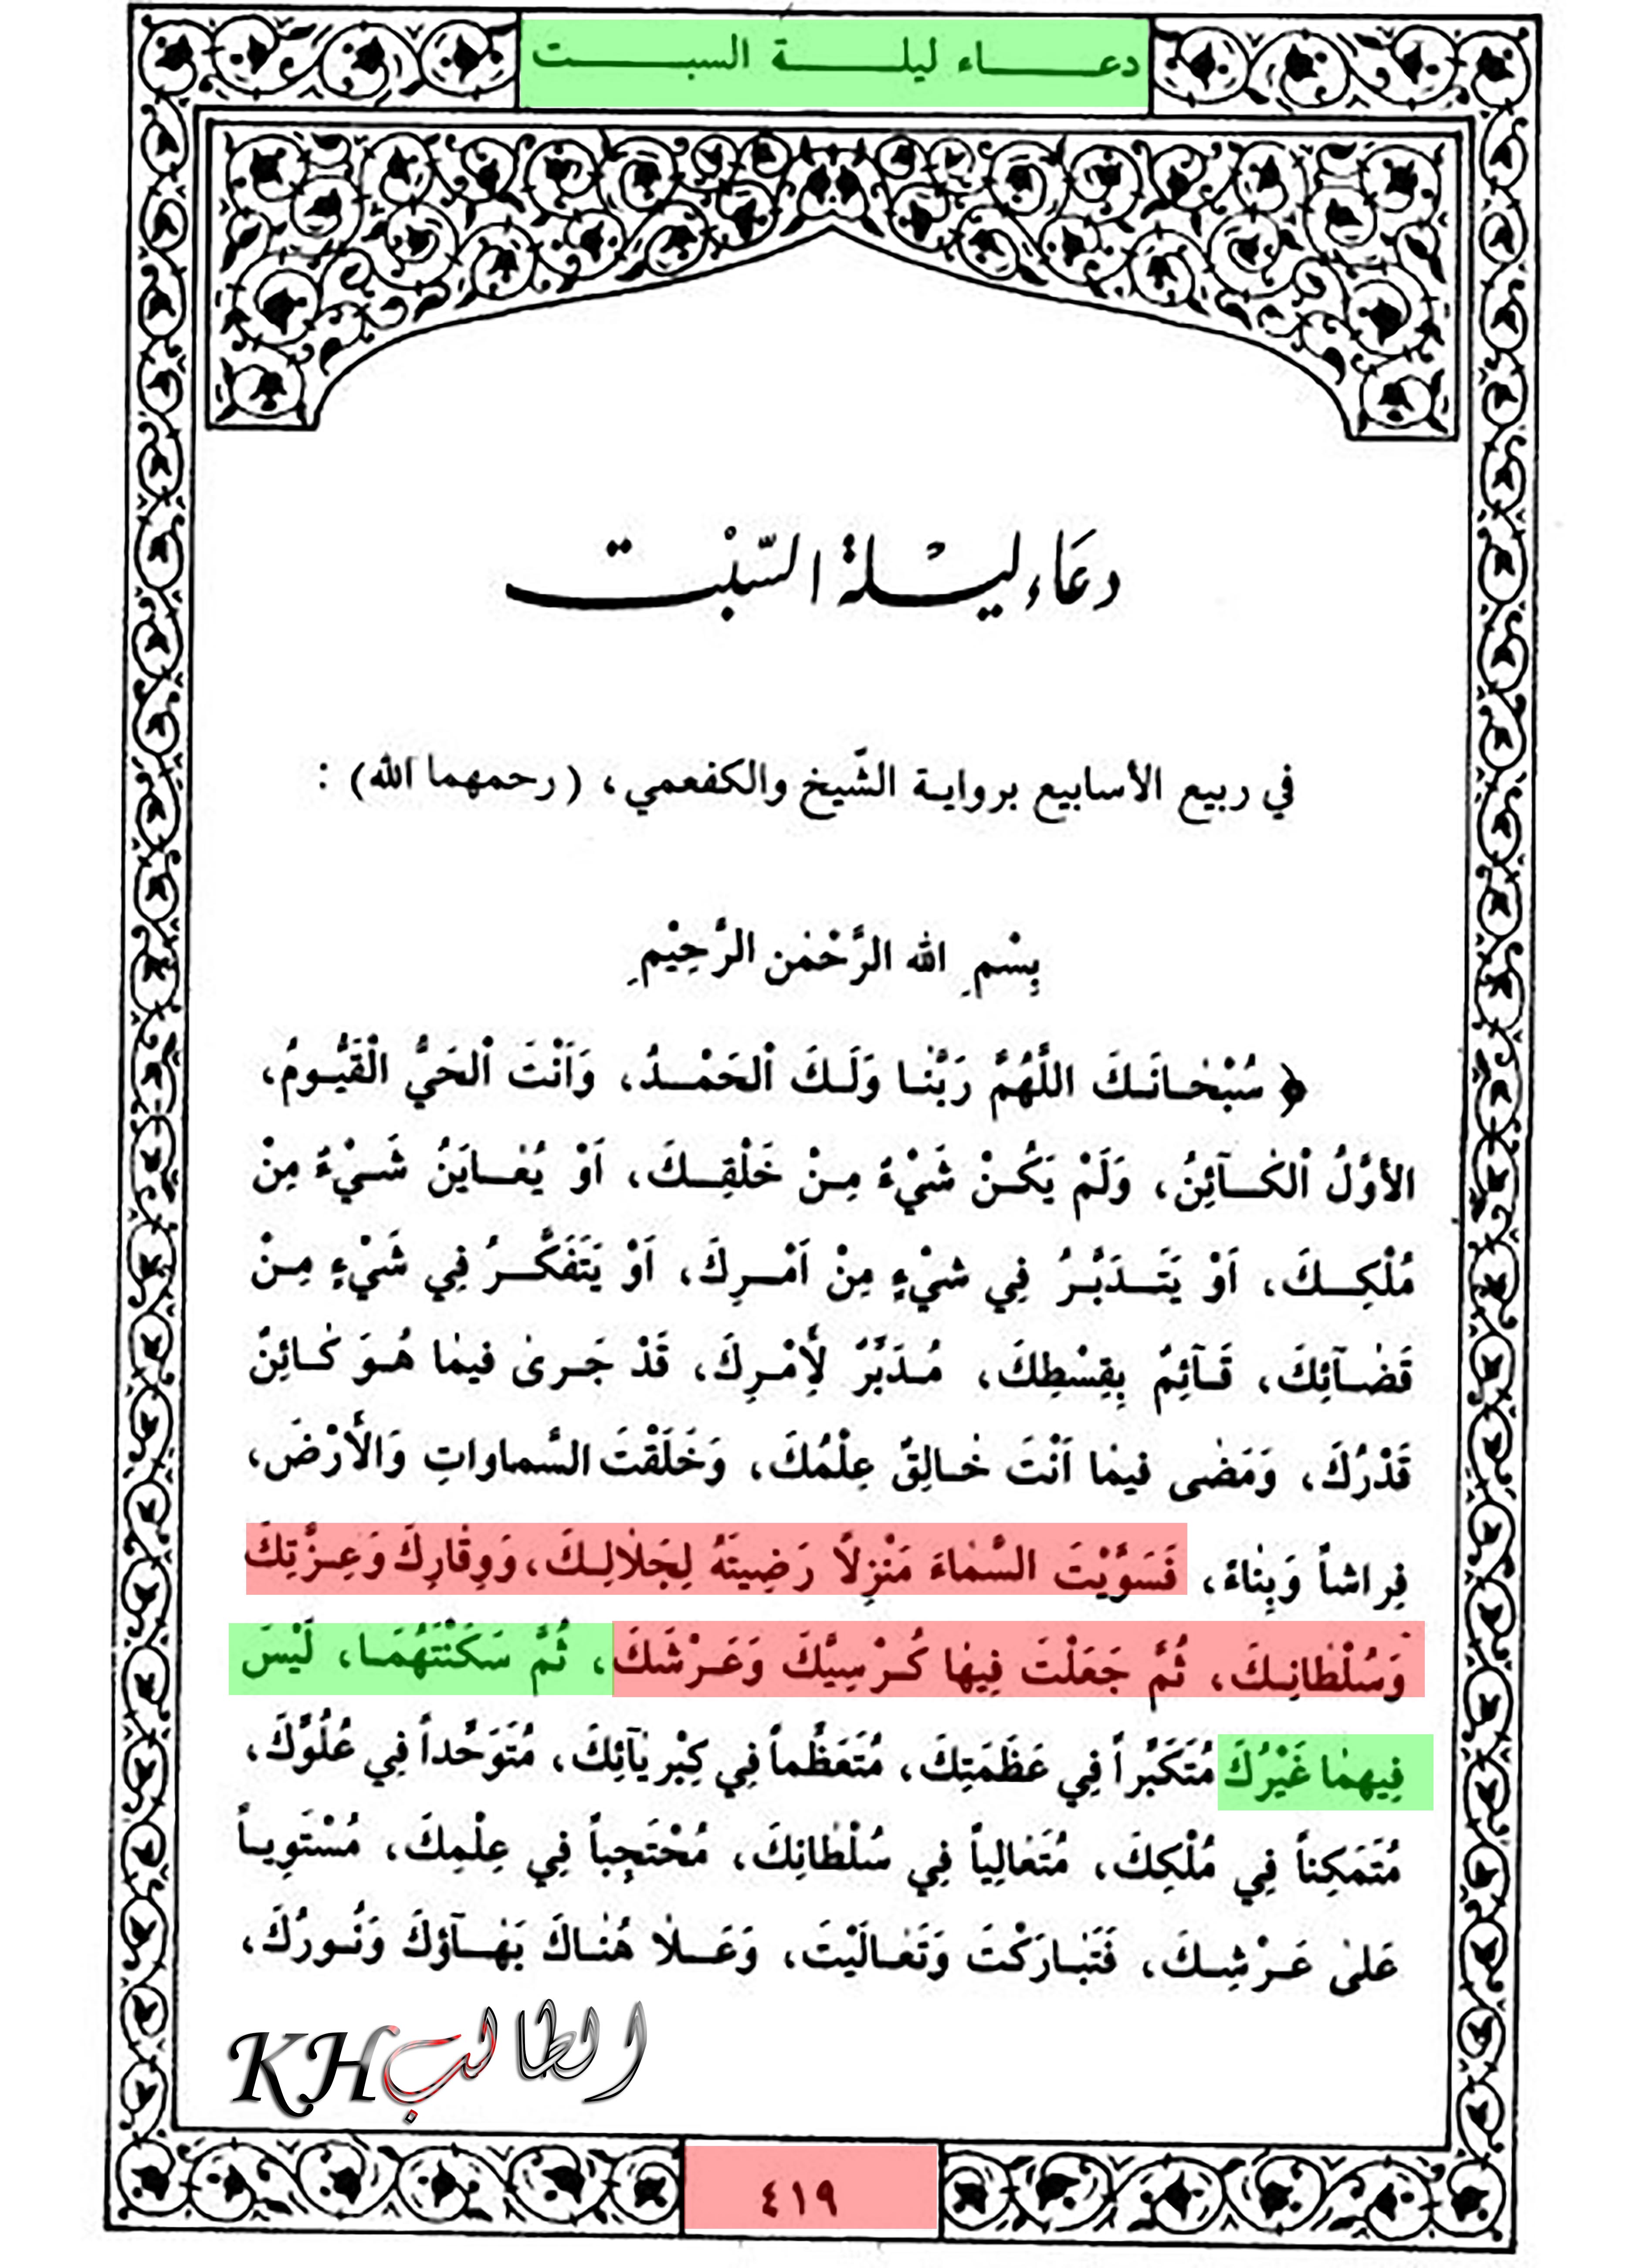 دعاء ليلة السبت
دعَاء ليْلة السّبْت
في ربيع الأسابيع برواية الشّيخ والكفعمي، (رحمهما الله) :
بِسْمِ الله الرَّحْمٰن الرَّحِيْمِ
﴿ سُبْحٰانَكَ اللَّهُمَّ رَبَّنٰا وَلَكَ اْلحَمْدُ، وَاَنْتَ اْلحَيُّ الْقَيُّومُ،
الأوَّلُ اْلكٰآئِنُ، وَلَمْ يَكُنْ شَيْءٌ مِنْ خَلْقِكَ، اَوْ يُعٰايَنُ شَيْءٌ مِنْ
مُلْكِكَ، اَوْ يَتَدَبَّرُ فِي شيْءٍ مِنْ اَمْرِكَ، اَوْ يَتَفَكَّرُ فِي شَيْءٍ مِنْ
قَضٰآئِكَ، قَآئِمٌ بِقِسْطِكَ، مُدَبِّرٌ لِأَمْرِكَ، قَدْ جَرىٰ فيمٰا هُوَ كٰائِنٌ
قَدْرُكَ، وَمَضٰى فيمٰا اَنْتَ خٰالِقٌ عِلْمُكَ، وَخَلَقْتَ السَّماواتِ وَالأَرْضَ،
فِراشاً وَبِنٰاءً، فَسَوَّيْتَ السَّمٰاءَ مَنْزِلاً رَضِيتَهُ لِجَلٰالِكَ، وَوِقٰارِكَ وَعِزَّتِكَ
وَسُلْطٰانِكَ، ثُمَّ جَعَلْتَ فِيهٰا كُرْسِيَّكَ وَعَرْشَكَ، ثُمَّ سَكَنْتَهُمَا، لَيْسَ
فِيهِمٰا غَيْرُكَ مُتَكَبِّراً فِي عَظَمَتِكَ، مُتَعَظِّماً فِي كِبْرِيٰآئِكَ، مُتَوَحِّداً فِي عُلُوِّكَ،
مُتَمَكِناً فِي مُلْكِكَ، مُتَعٰالِياً فِي سُلْطٰانِكَ، مُحْتَجِباً فِي عِلْمِكَ، مُسْتَوِياً
عَلىٰ عَرْشِكَ، فَتَبٰارَكْتَ وَتَعٰالَيْتَ، وَعَلٰا هُنٰاكَ بَهٰآؤكَ وَنُورُكَ،
الطالب KH
٤١٩